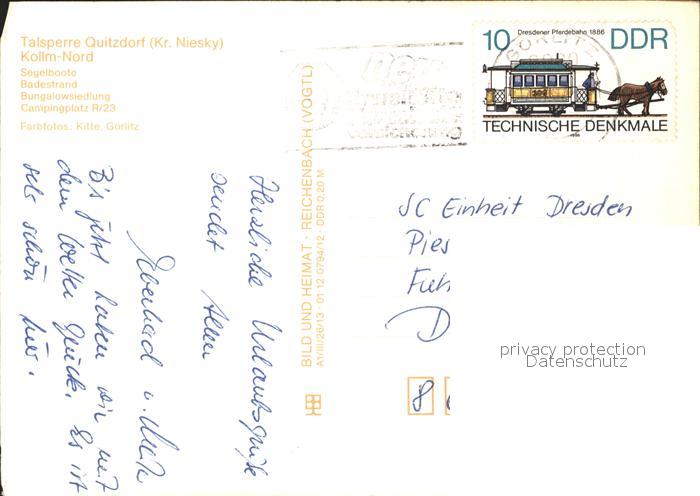 Talsperre Quitzdorf (Kr. Niesky)
Kollm-Nord
Segelboote
Badestrand
Bungalowsiedlung
Campingplatz R/23
Farbfotos: Kitte, Görlitz
Dresdener Pferdebahn 1886
10 DDR
TECHNISCHE DENKMALE
1986
GÖRLITZ
BILD UND HEIMAT · REICHENBACH (VOGTL)
A1/III/26/13 · 01 12 0794/12 · DDR 0,20 M
Herzliche Urlaubsgrüße
sendet Allen
Eberhard u.
Bis jetzt haben wir mit
dem Wetter Glück. Es ist
sehr schön hier.
SC Einheit Dresden
Pies
Fuh
D
8
privacy protection
Datenschutz